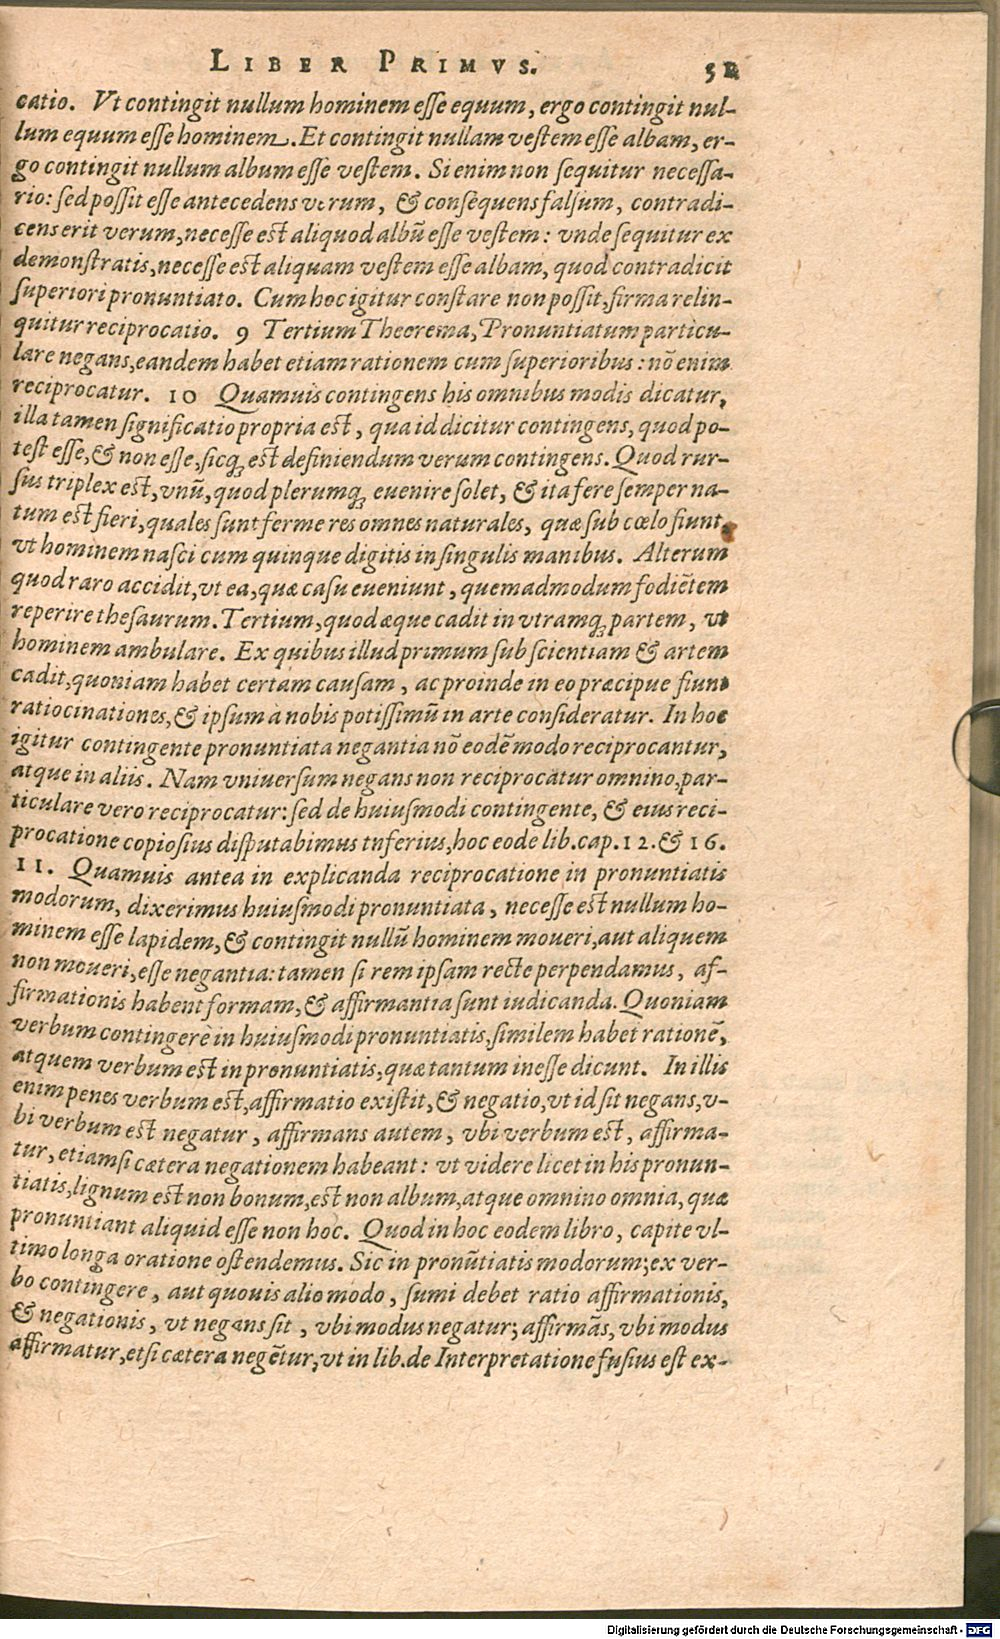 LIBER PRIMVS. 51
catio. Vt contingit nullum hominem esse equum, ergo contingit nul-
lum equum esse hominem. Et contingit nullam vestem esse albam, er-
go contingit nullum album esse vestem. Si enim non sequitur necessa-
rio: sed possit esse antecedens verum, & consequens falsum, contradi-
cens erit verum, necesse est aliquod albũ esse vestem: vnde sequitur ex
demonstratis, necesse est aliquam vestem esse albam, quod contradicit
superiori pronuntiato. Cum hoc igitur constare non possit, firma relin-
quitur reciprocatio. 9 Tertium Theorema, Pronuntiatum particu-
lare negans, eandem habet etiam rationem cum superioribus: nō enim
reciprocatur. 10 Quamuis contingens his omnibus modis dicatur,
illa tamen significatio propria est, qua id dicitur contingens, quod po-
test esse, & non esse, sicq; est definiendum verum contingens. Quod rur-
sus triplex est, vnũ, quod plerumq; euenire solet, & ita fere semper na-
tum est fieri, quales sunt ferme res omnes naturales, quæ sub cœlo fiunt,
vt hominem nasci cum quinque digitis in singulis manibus. Alterum
quod raro accidit, vt ea, quæ casu eueniunt, quemadmodum fodiētem
reperire thesaurum. Tertium, quod æque cadit in vtramq; partem, vt
hominem ambulare. Ex quibus illud primum sub scientiam & artem
cadit, quoniam habet certam causam, ac proinde in eo præcipue fiunt
ratiocinationes, & ipsum à nobis potissimũ in arte consideratur. In hoc
igitur contingente pronuntiata negantia nō eodē modo reciprocantur,
atque in aliis. Nam vniuersum negans non reciprocatur omnino, par-
ticulare vero reciprocatur: sed de huiusmodi contingente, & eius reci-
procatione copiosius disputabimus inferius, hoc eode lib. cap. 12. & 16.
11. Quamuis antea in explicanda reciprocatione in pronuntiatis
modorum, dixerimus huiusmodi pronuntiata, necesse est nullum ho-
minem esse lapidem, & contingit nullũ hominem moueri, aut aliquem
non moueri, esse negantia: tamen si rem ipsam recte perpendamus, af-
firmationis habent formam, & affirmantia sunt iudicanda. Quoniam
verbum contingere in huiusmodi pronuntiatis, similem habet rationē,
atquem verbum est in pronuntiatis, quæ tantum inesse dicunt. In illis
enim penes verbum est, affirmatio existit, & negatio, vt id sit negans, v-
bi verbum est negatur, affirmans autem, vbi verbum est, affirma-
tur, etiamsi cætera negationem habeant: vt videre licet in his pronun-
tiatis, lignum est non bonum, est non album, atque omnino omnia, quæ
pronuntiant aliquid esse non hoc. Quod in hoc eodem libro, capite vl-
timo longa oratione ostendemus. Sic in pronũtiatis modorum, ex ver-
bo contingere, aut quouis alio modo, sumi debet ratio affirmationis,
& negationis, vt negans sit, vbi modus negatur; affirmãs, vbi modus
affirmatur, etsi cætera negētur, vt in lib. de Interpretatione fusius est ex-
Digitalisierung gefördert durch die Deutsche Forschungsgemeinschaft - DFG